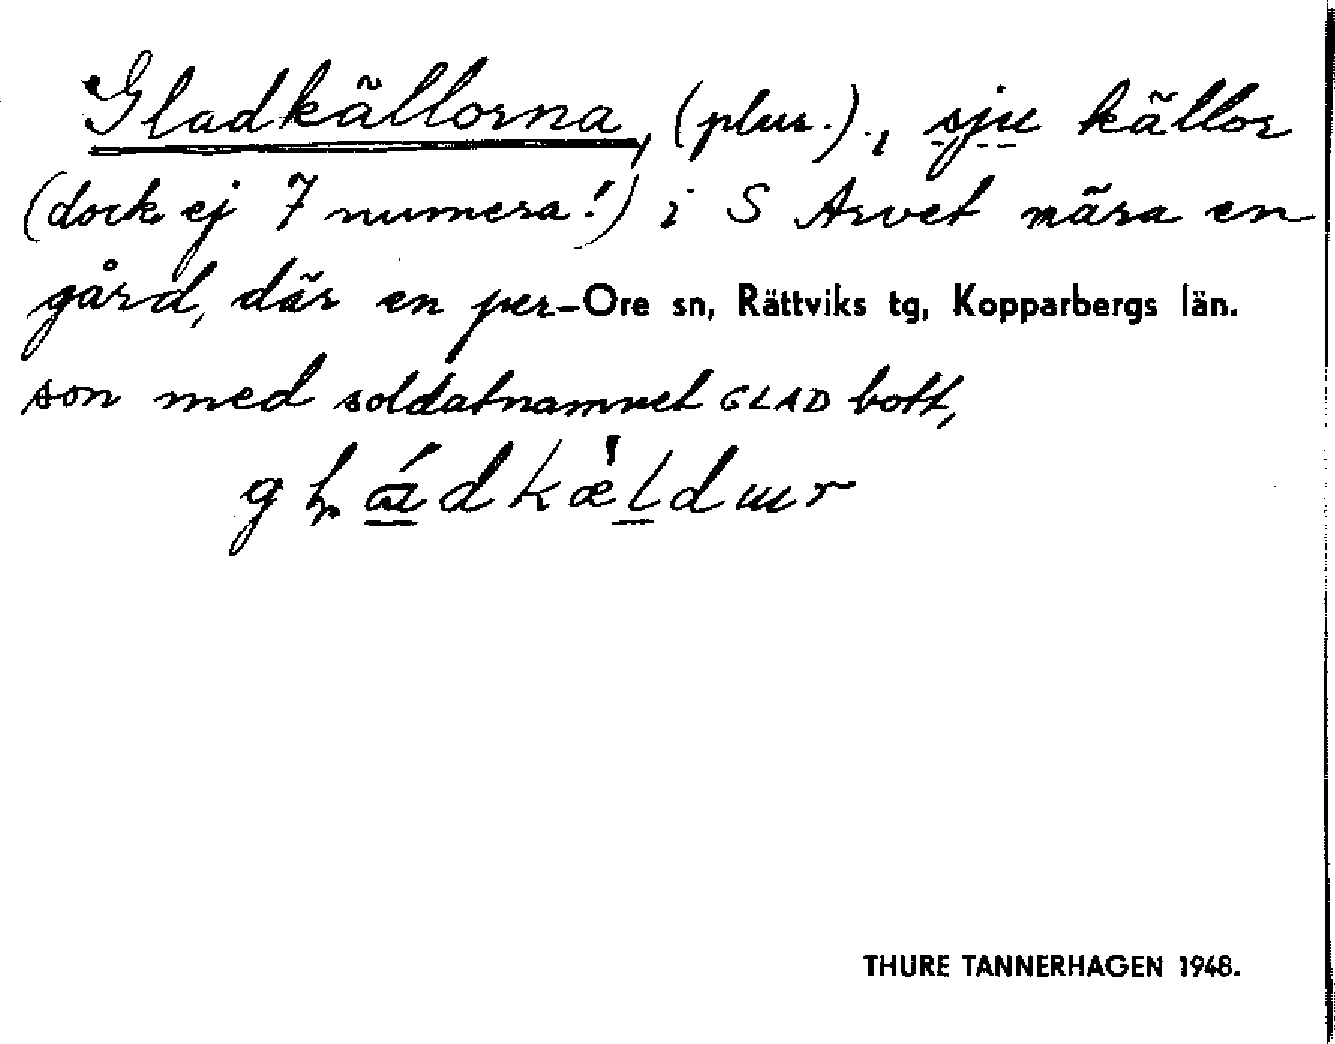 Gladkällorna, (plur.)., sju källor
(dock ej 7 numera!) i S Arvet nära en
gård, där en per-Ore sn, Rättviks tg, Kopparbergs län.
son med soldatnamnet GLAD bott,
THURE TANNERHAGEN 1948.